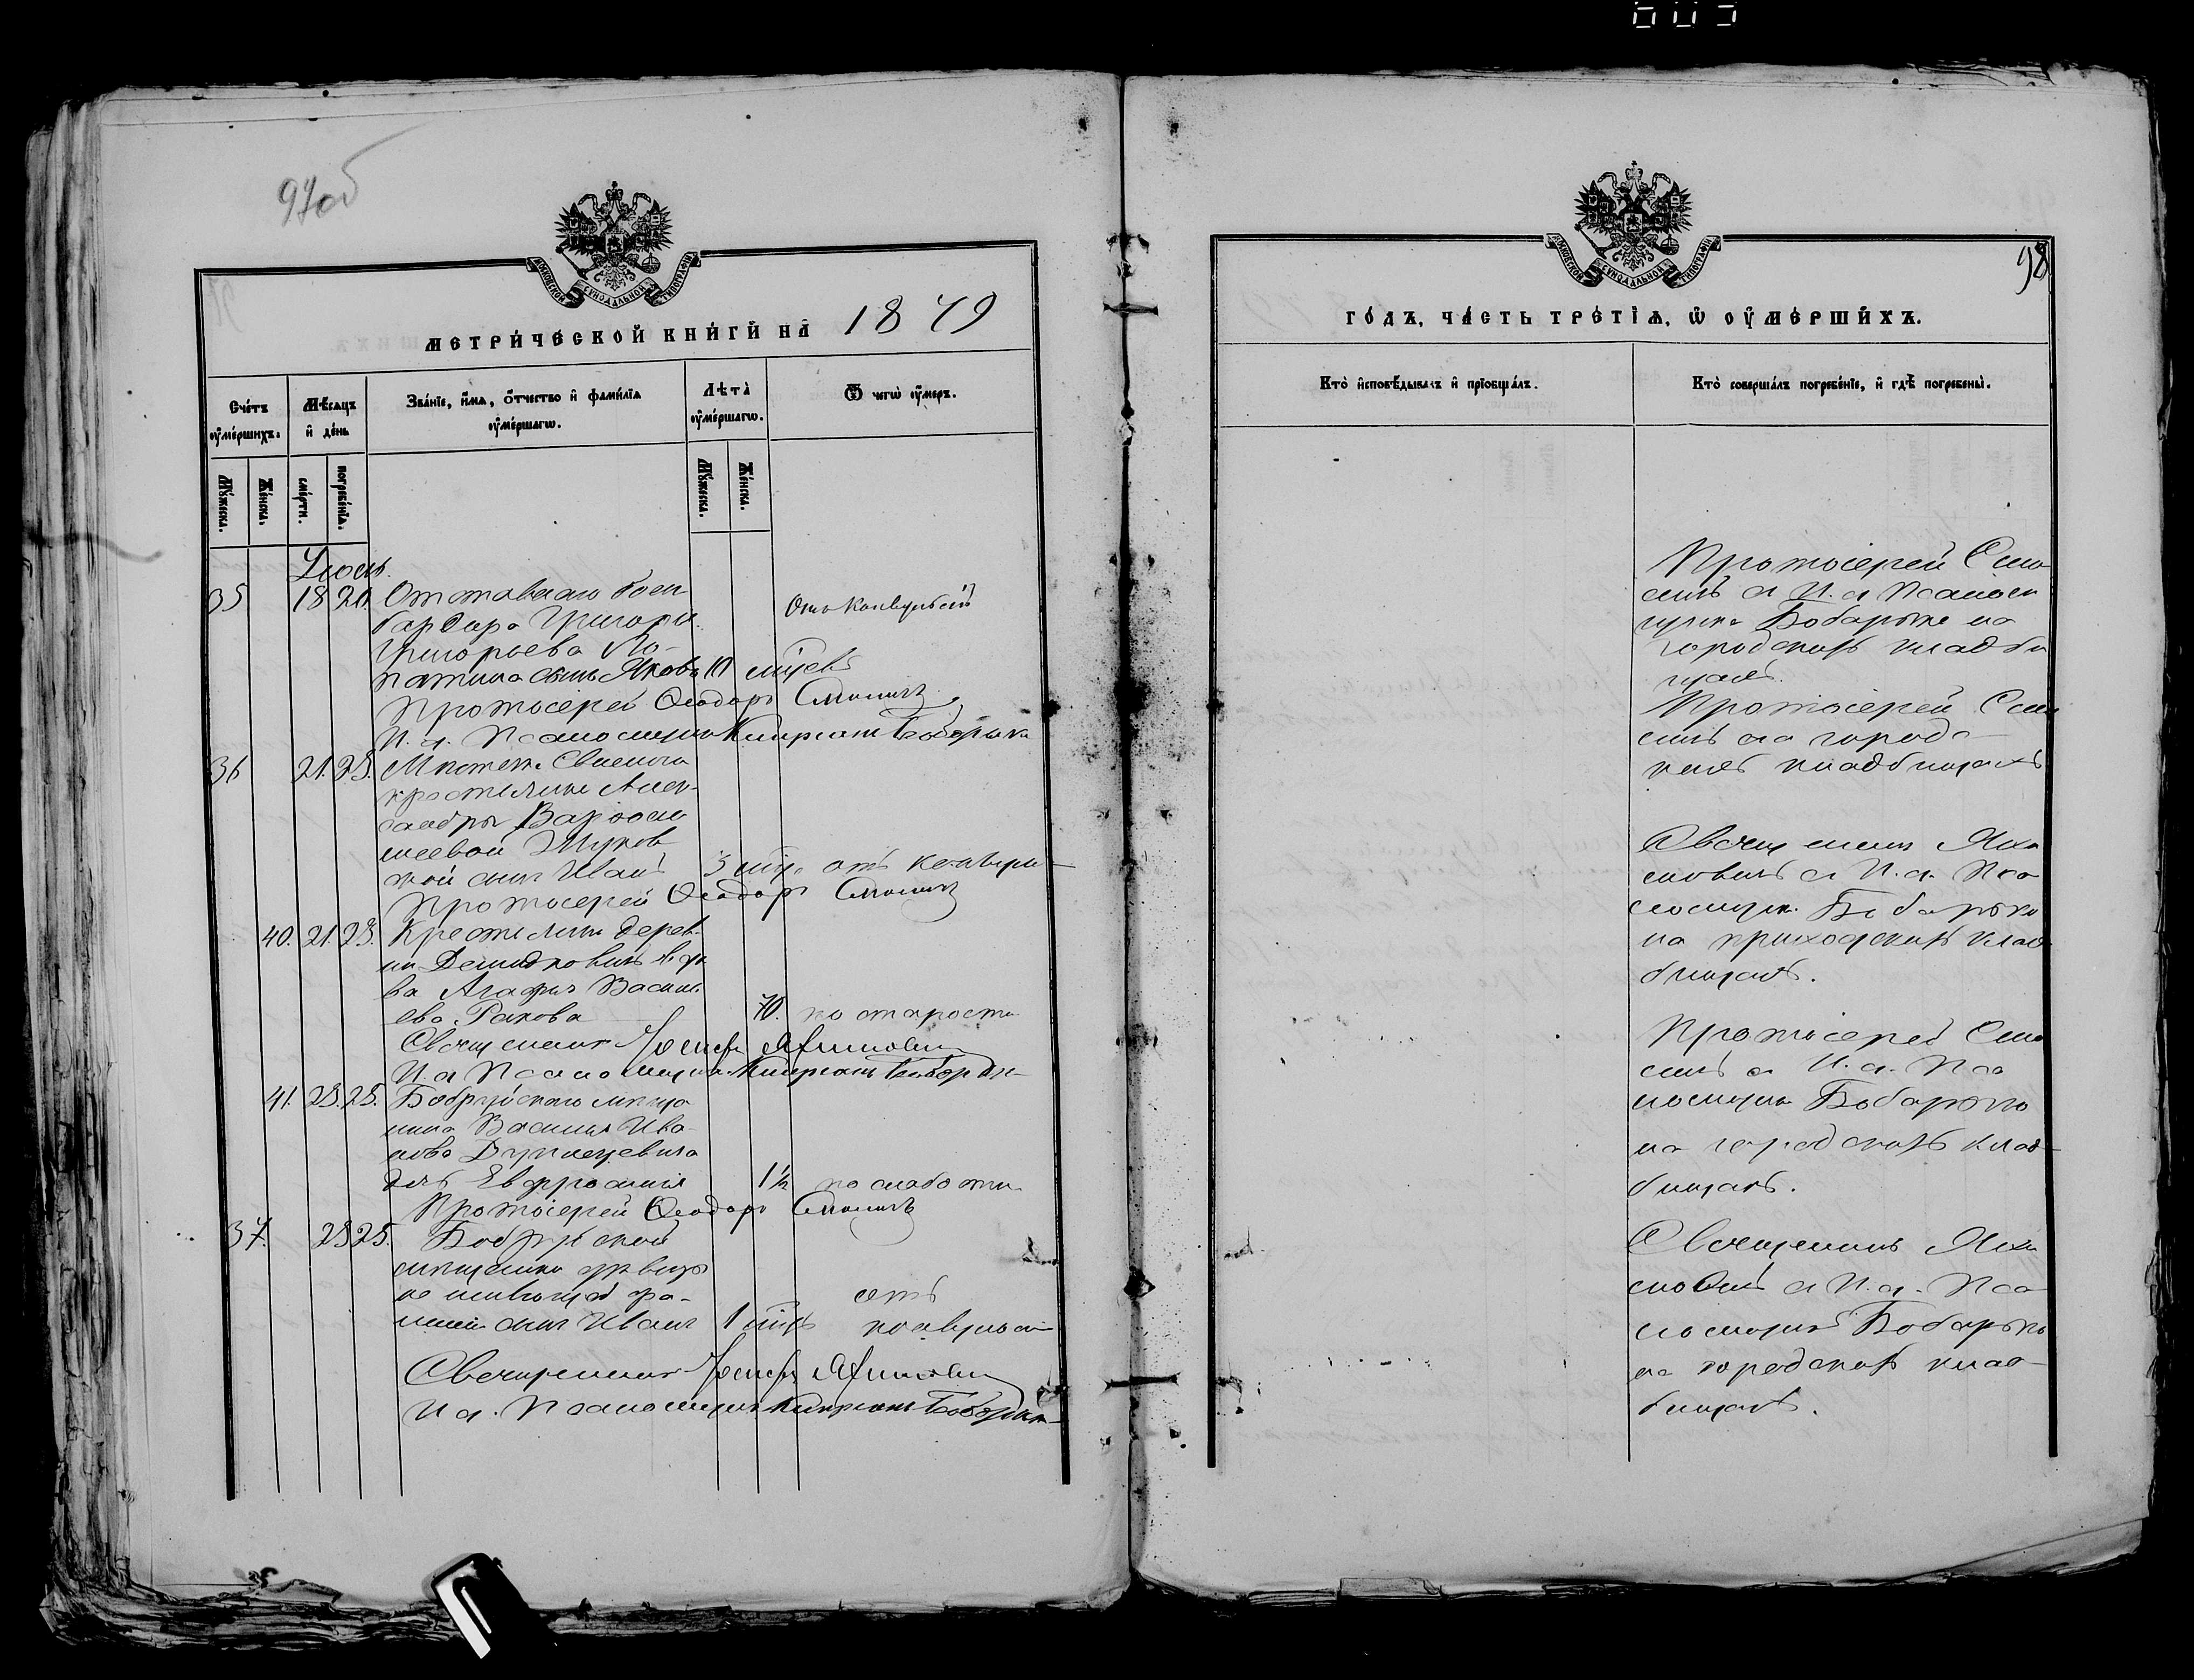 97об
МОСКОВСКОЙ СУНОДАЛЬНОЙ ТИПОГРАФІИ
МЕТРИ́ЧЕСКОЙ КНИ́ГИ НА 1879
Сче́тъ оу҆ме́ршихъ.
Мѣ́сяцъ и҆ де́нь
Зва́нїе, и҆́мѧ, ѻ҆́тчество и҆ фами́лїѧ оу҆ме́ршагѡ.
Лѣта̀ оу҆ме́ршагѡ.
Ѿ чегѡ̀ оу҆́меръ.
Мꙋ́жеска.
Же́нска.
сме́рти.
погребе́нїѧ.
Мꙋ́жеска.
Же́нска.
Іюль.
35 18 20. Отставнаго бом-
бардира Григорія
Григорьева Ло-
патина сынъ Яковъ 10 мѣсѣ Отъ Конвульсій
Протоіерей Ѳеодоръ Смоличъ
И. д. Псаломщика Кипріанъ Бобарыка
36 21. 23. сынъ Иванъ 3 мѣс. отъ конвульс
Протоіерей Ѳеодоръ Смоличъ
40. 21. 23. Крестьянка дерев-
ни вдо
ва Агафія Василь
ева Ракова 70. по старости
Священникъ Іосифъ
И. д. Псаломщика Кипріанъ Бобарыка
41. 23. 25. Бобруйскаго мѣща
нина Василія Ива
нова
дочь Евфросинія 1½ по слабости
Протоіерей Ѳеодоръ Смоличъ
37. 23 25. Бобруйской
мѣщанки дѣвицы
сынъ Иванъ 1 мѣсъ отъ
конвульсій
Священникъ Іосифъ
И. д. Псаломщика Кипріанъ Бобарыка
98
МОСКОВСКОЙ СУНОДАЛЬНОЙ ТИПОГРАФІИ
ГО́ДЪ, ЧА́СТЬ ТРЕ́ТЇѦ, Ѡ҆ ОУ҆МЕ́РШИХЪ.
Кто̀ и҆сповѣ́дывалъ и҆ прїѡбща́лъ.
Кто̀ соверша́лъ погребе́нїе, и҆ гдѣ̀ погребены̀.
Протоіерей Смо
личъ и И. д. Псалом
щика Бобарыка на
городскомъ кладби
щѣ.
Протоіерей Смо
личъ на город-
скомъ кладбищѣ
Священникъ
и И. д. Пса
ломщика Бобарыка
на приходскомъ клад
бищѣ.
Протоіерей Смо
личъ и И. д. Пса
ломщика Бобарыка
на городскомъ клад-
бищѣ.
Священникъ
и И. д. Пса
ломщика Бобарыка
на городскомъ клад-
бищѣ.